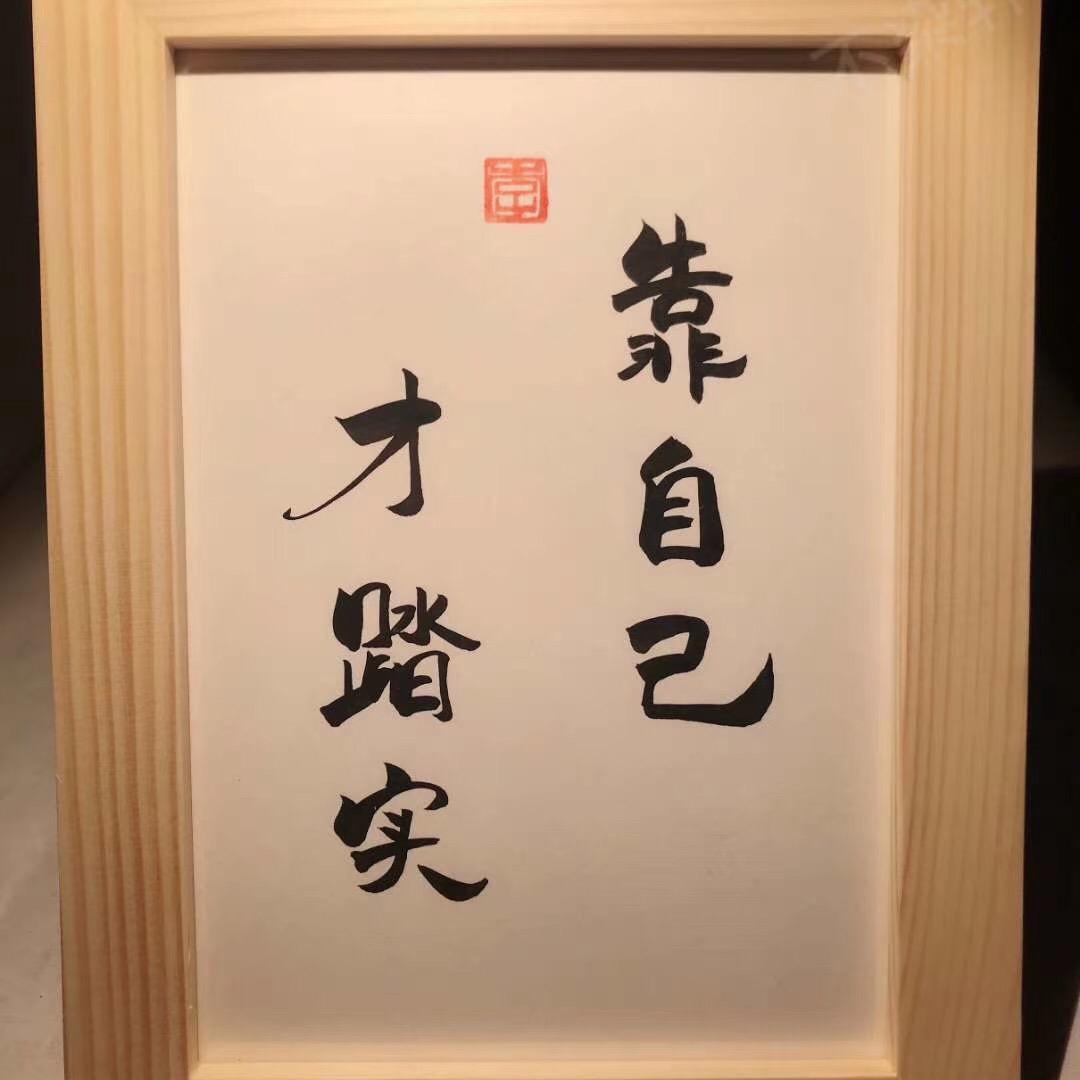 靠自己
才踏实